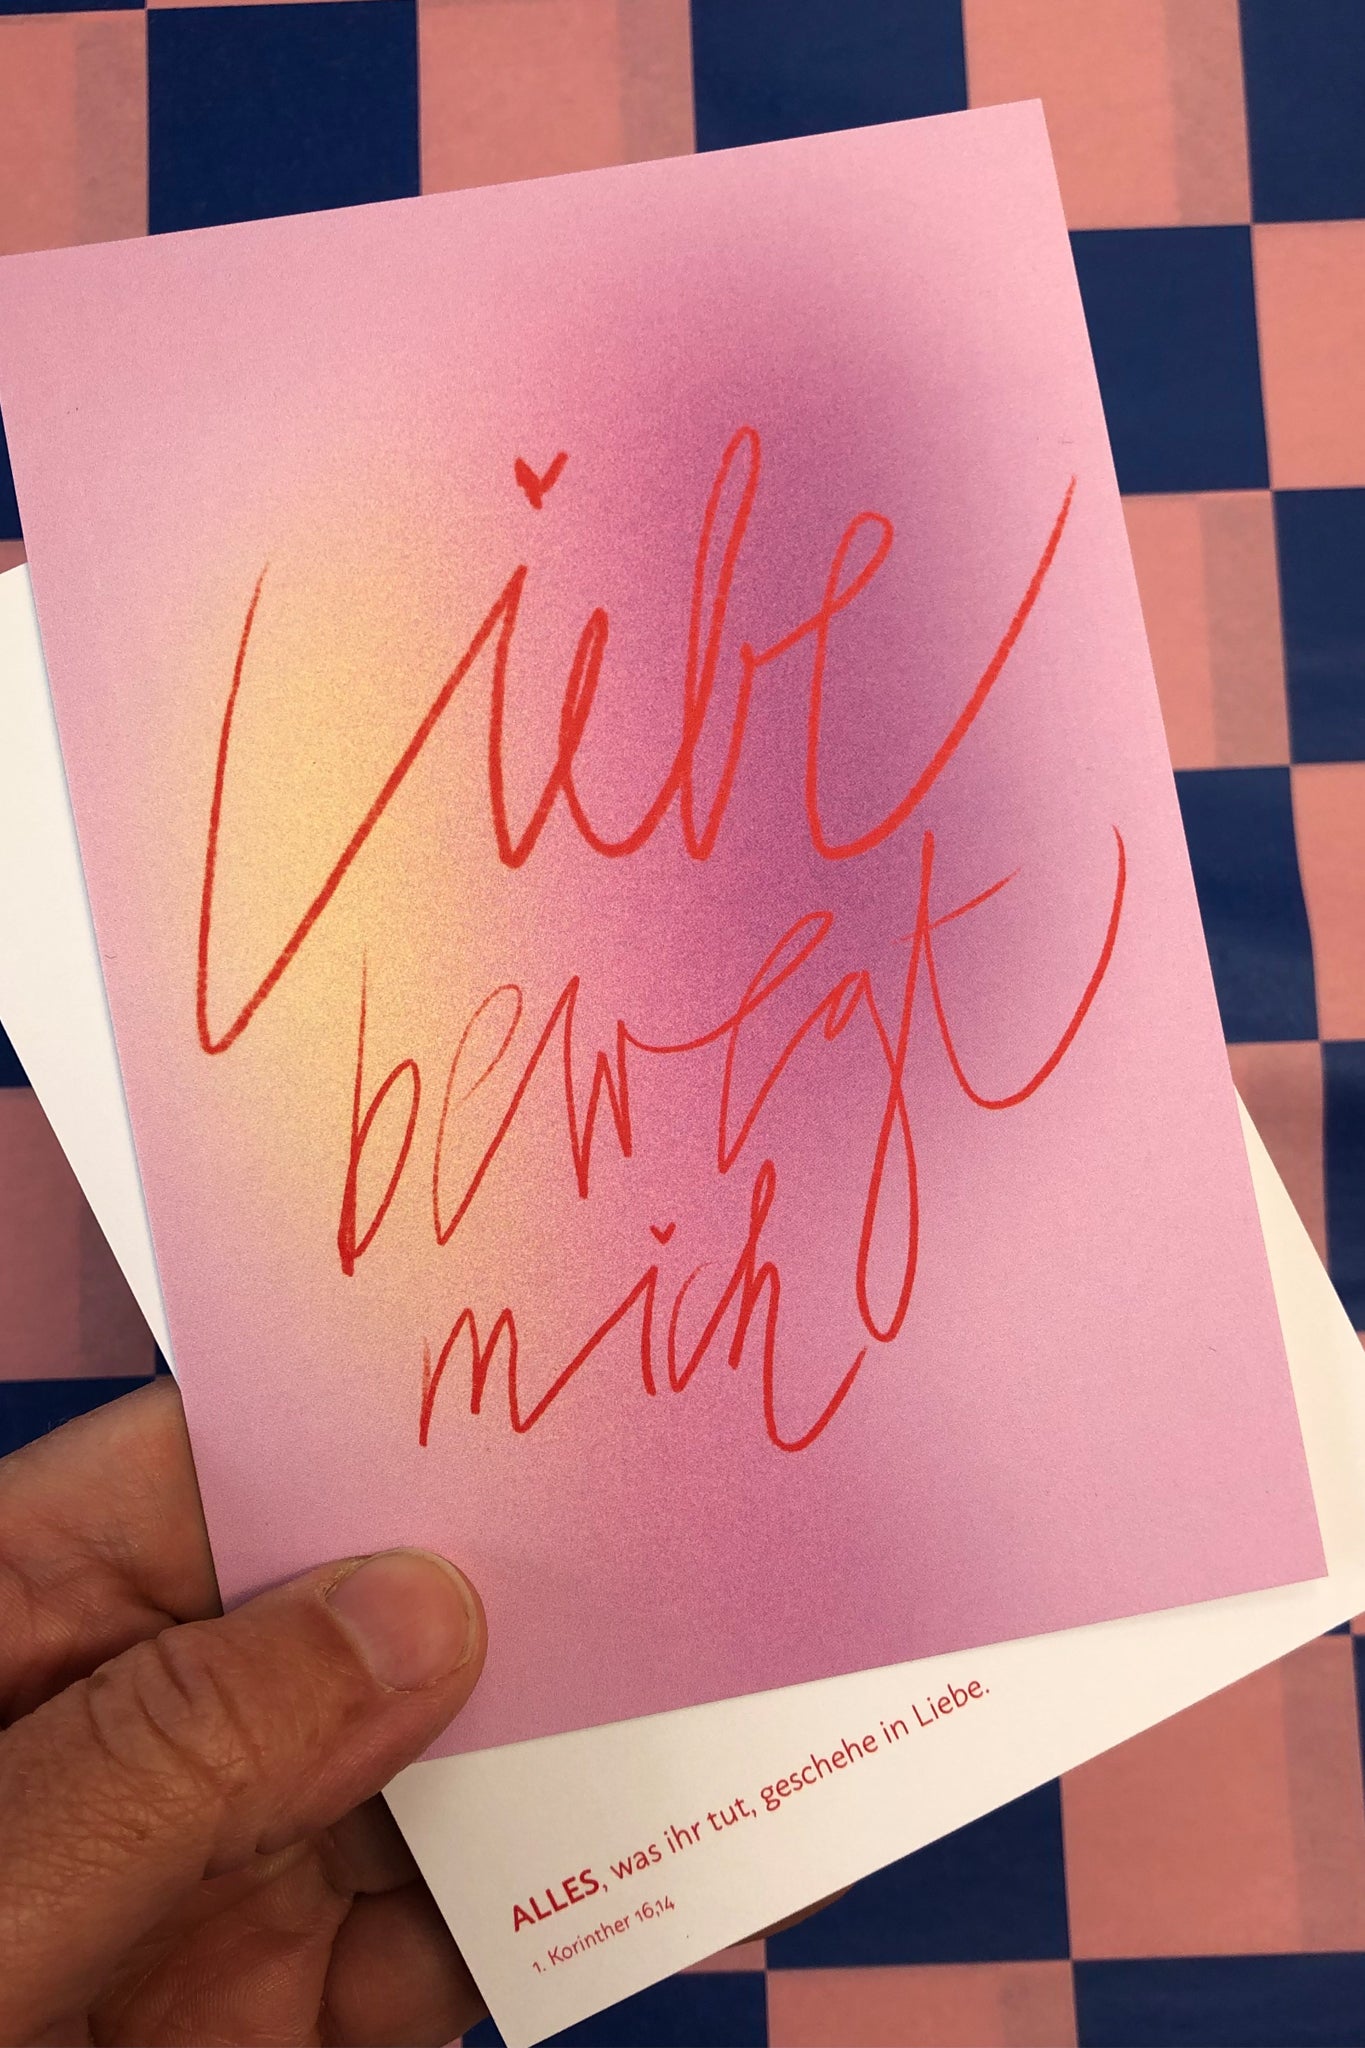 Liebe
bewegt
mich
ALLES, was ihr tut, geschehe in Liebe.
1. Korinther 16,14